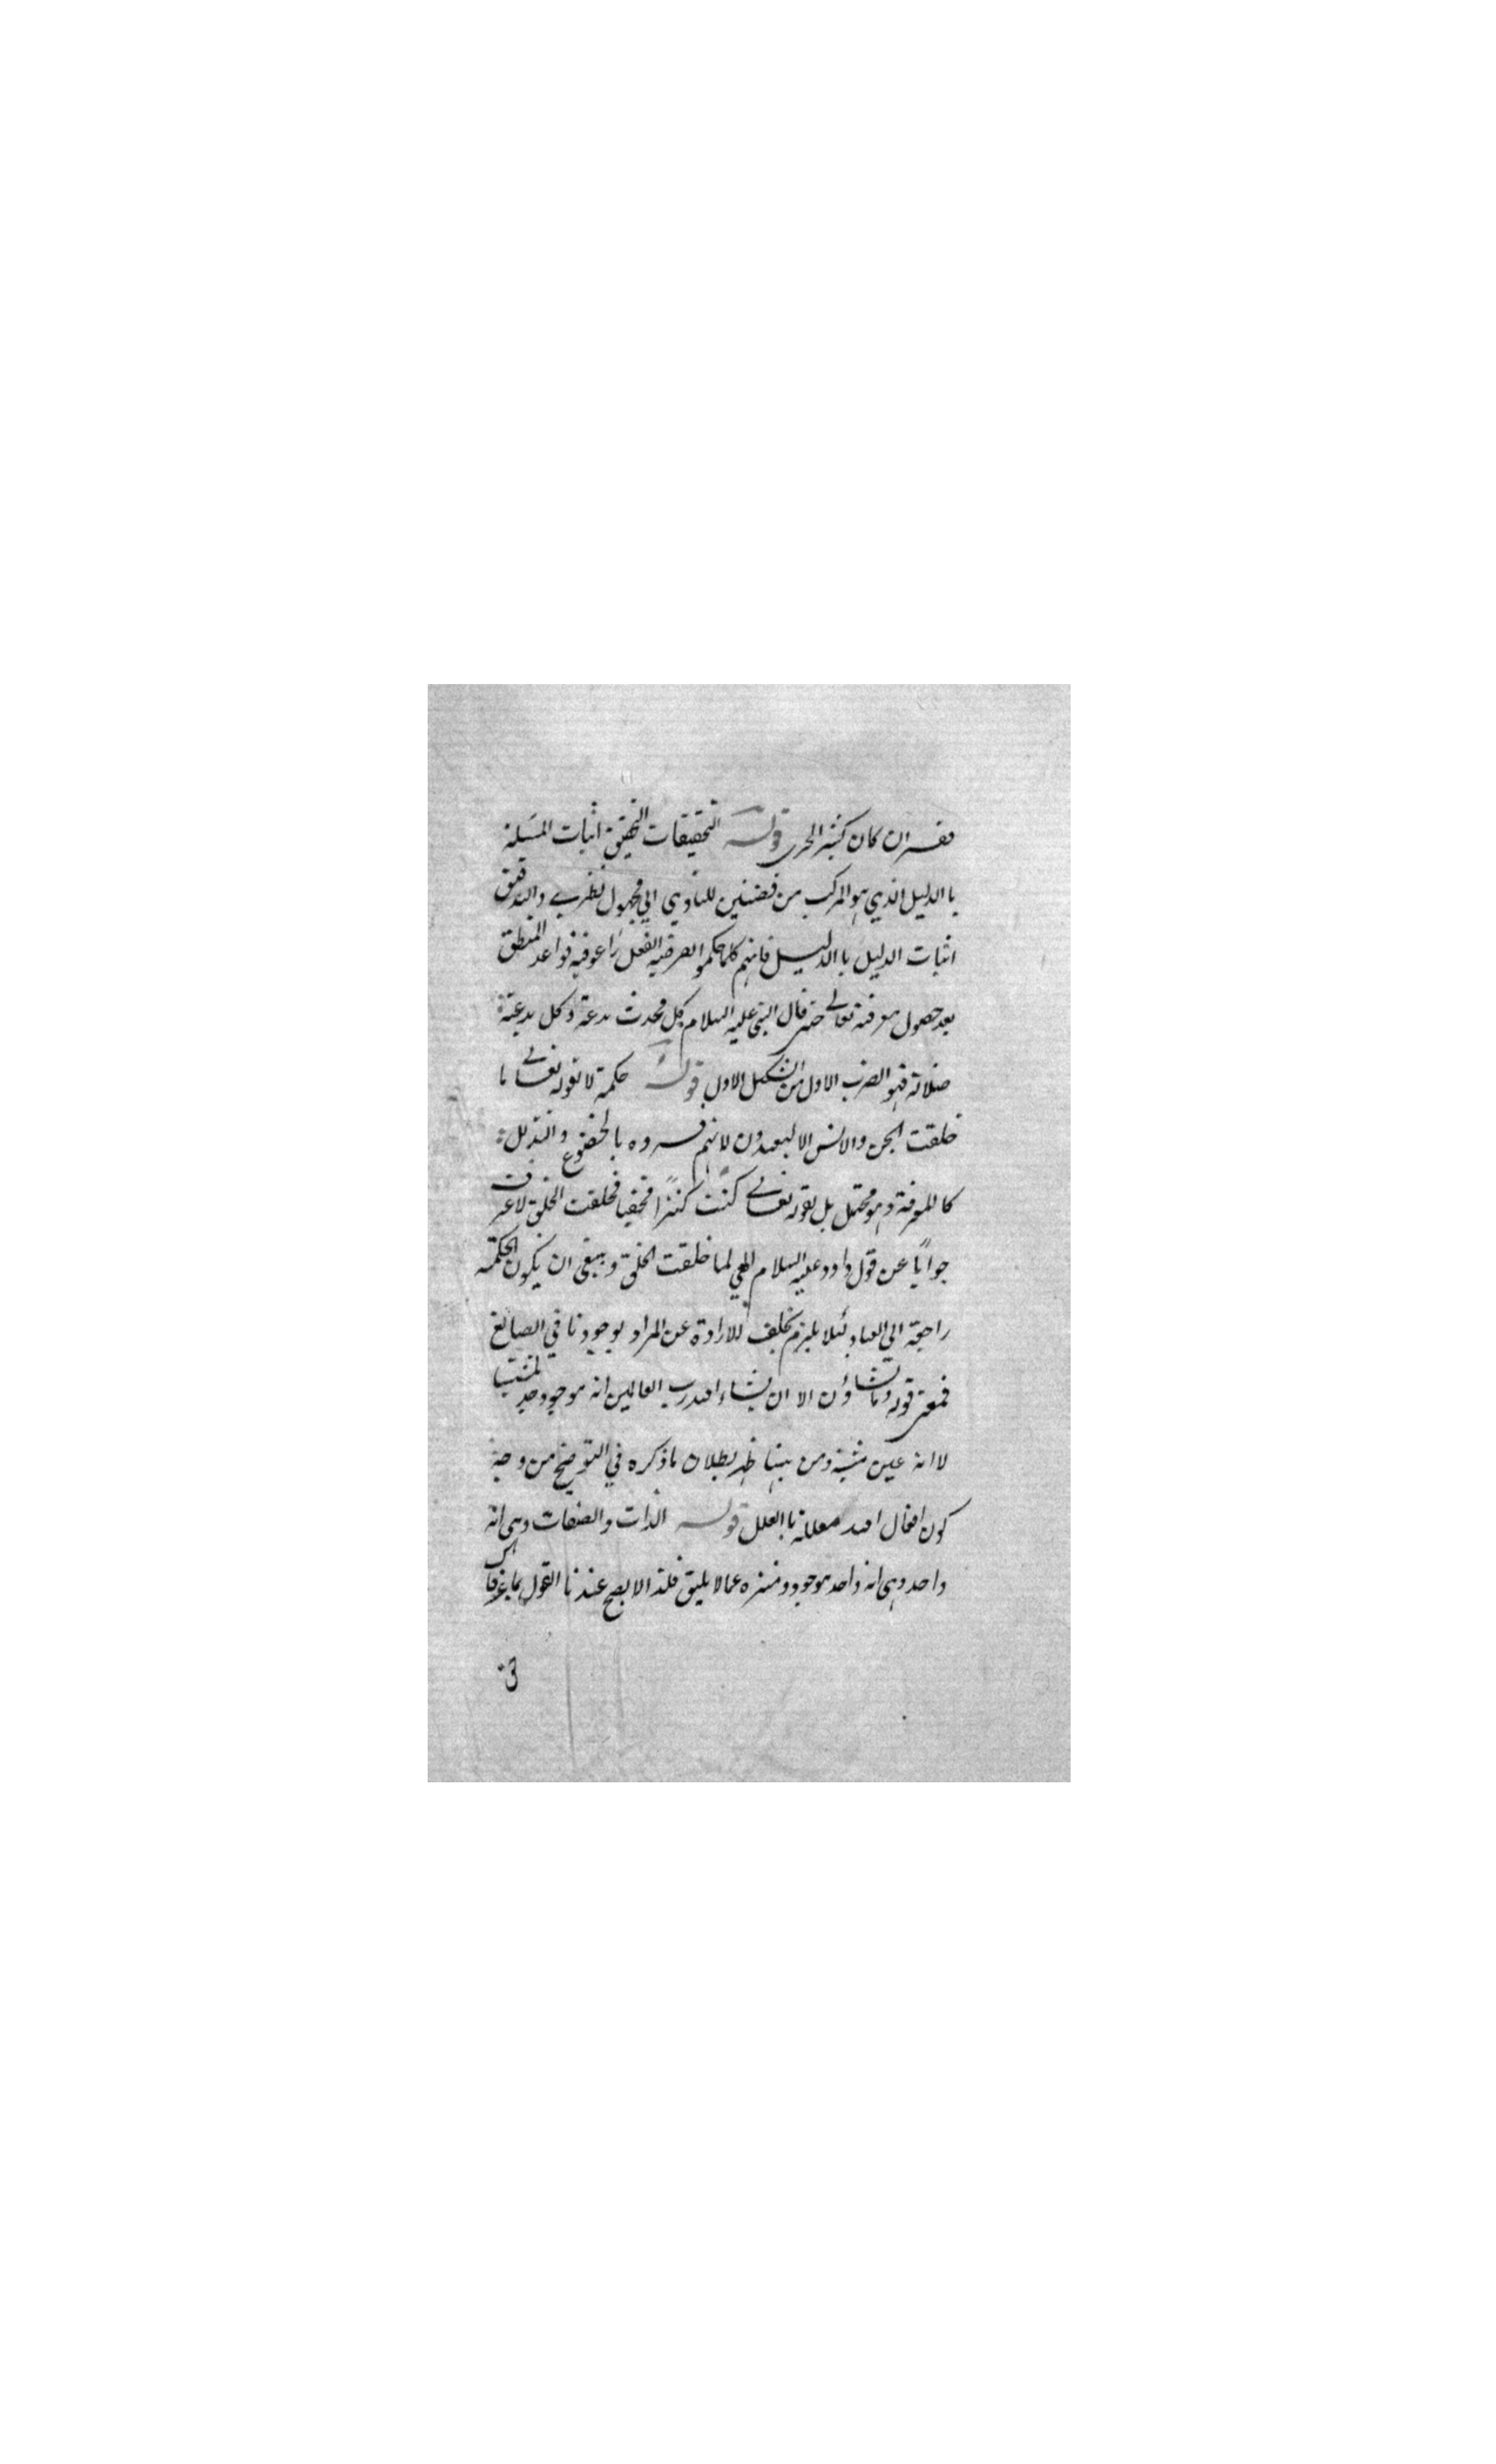 فقسر ان كان كثير الجرى قوله التحقيقات التحقيق اثبات المسئلة
با الدليل الذي هو المركب من قضيتين للتأدي الي مجهول نظري والتدقيق
اثبات الدليل با الدليل فانهم كلما حكموا لصرفية الفعل راعوا فيه قواعد المنطق
بعد حصول معرفته تعالى حتى قال النبي عليه السلام كل محدث بدعة وكل بدعة
ضلالة فهو الضرب الاول من الشكل الاول قوله حكمة لا بقوله تعالى ما
خلقت الجن والانس الا ليعبدون لانهم فسروه بالخضوع والتذلل
كا للمعرفة وهو محتمل بل بقوله تعالى كنت كنزا مخفيا فخلقت الخلق لاعرف
جوابا عن قول داود عليه السلام الهي لما خلقت الخلق وينبغي ان يكون الحكمة
راجعة الى العباد لئلا يلزم تخلف للارادة عن المراد بوجودنا في الصانع
فمعنى قوله وما تشاؤن الا ان يشاء الله رب العالمين انه موجود لمشيتنا
لا انه عين مشيته ومن بينها ظهر بطلان ما ذكره في التوضيح من وجه
كون افعال الله معللة با العلل قوله الذات والصفات وهي انه
واحد وهي انه واحد موجود ومنزه عما لا يليق فلذا لا يصح عندنا القول